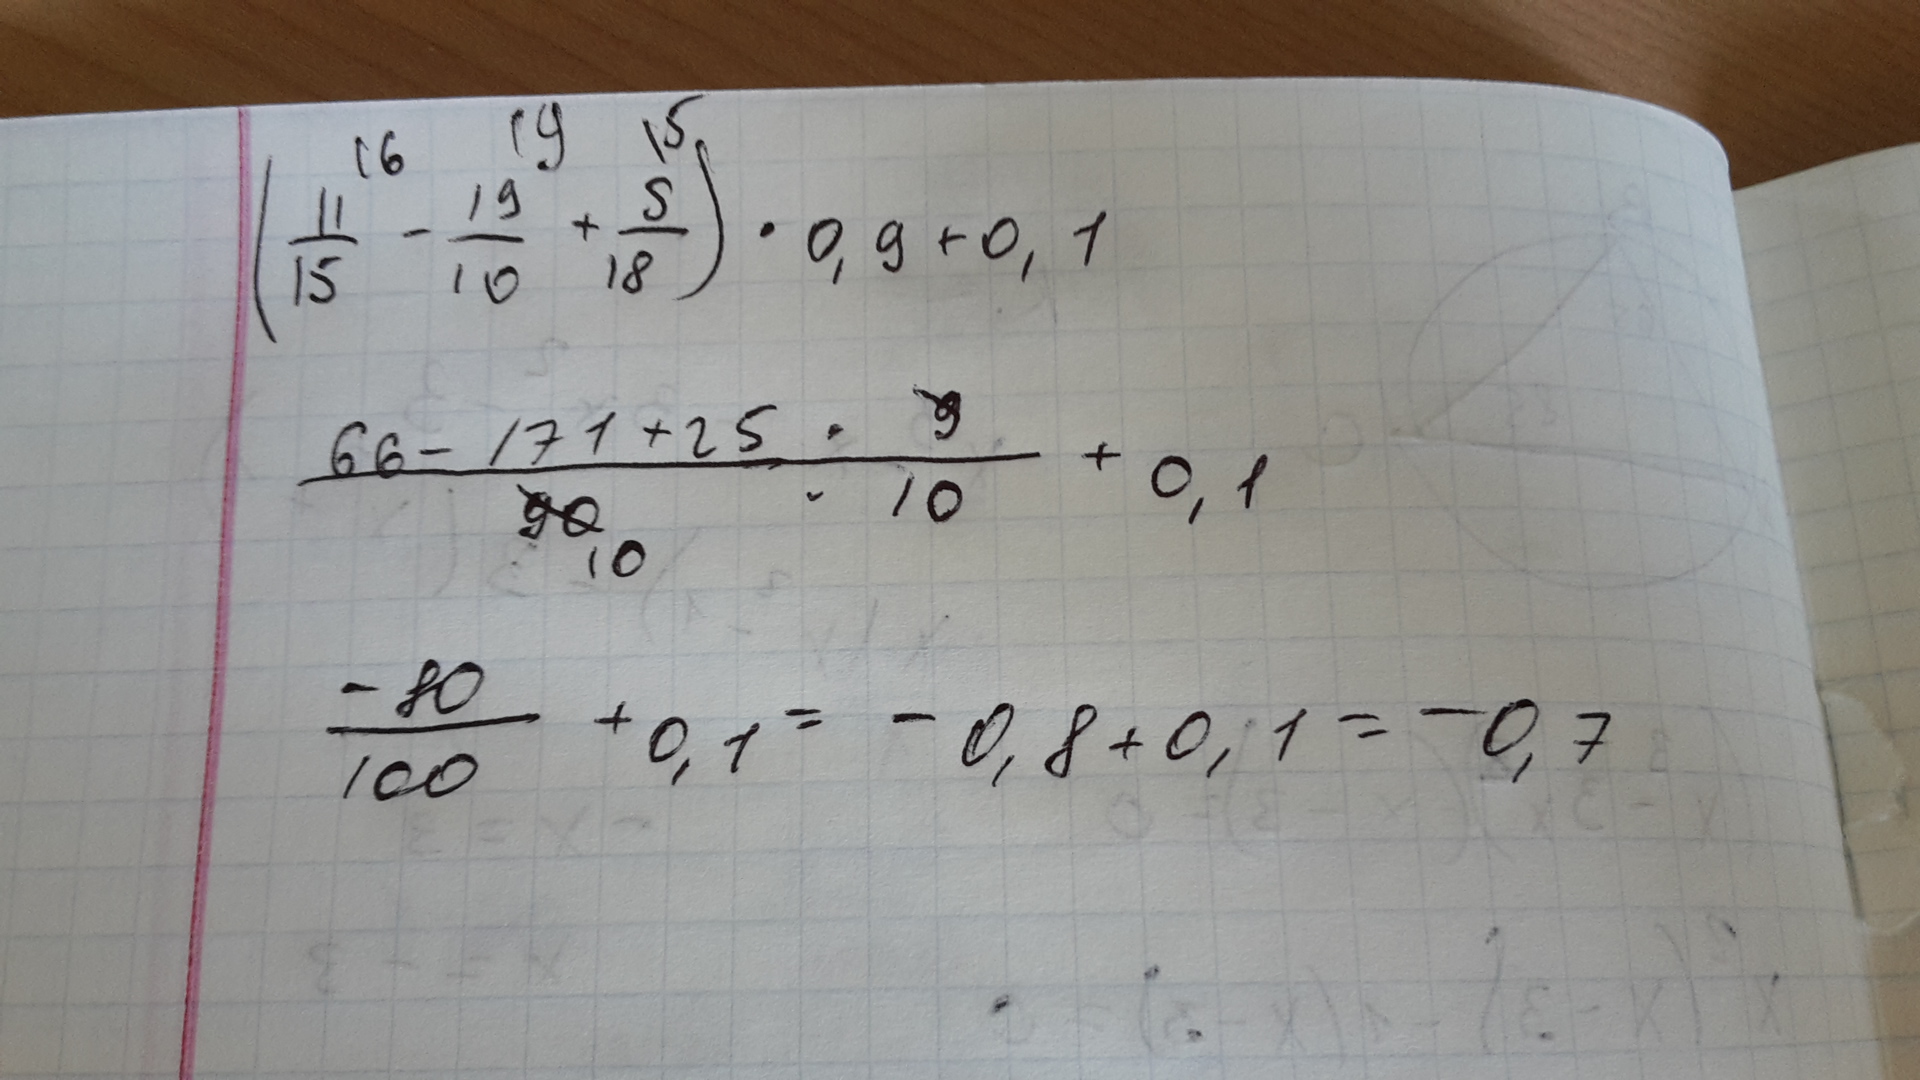 (11/15 ^16 - 19/10 ^19 + 5/18 ^15) · 0,9 + 0,1
66 - 171 + 25 · 9 / 90 10 · 10 + 0,1
-80/100 + 0,1 = -0,8 + 0,1 = -0,7